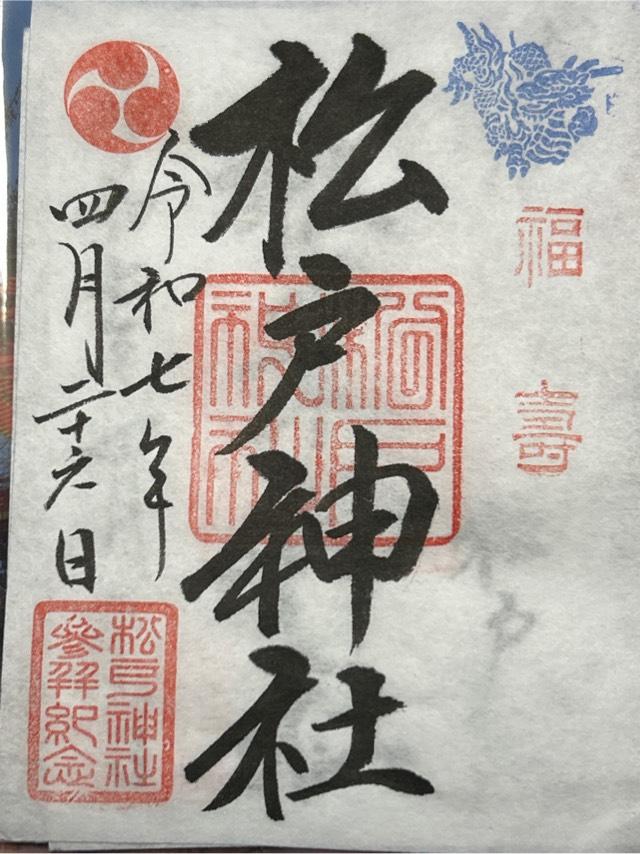 福壽
松戸神社
令和七年
四月二十六日
松戸神社
參拜紀念